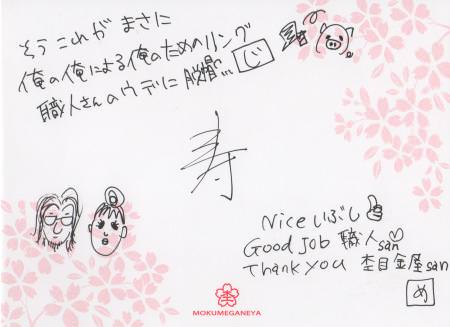 そうこれが まさに
俺の俺による俺のためのリング
職人さんのウデに脱帽… じ
寿
Nice いぶし
Good Job 職人san
Thank you 杢目金屋san
め
MOKUMEGANEYA